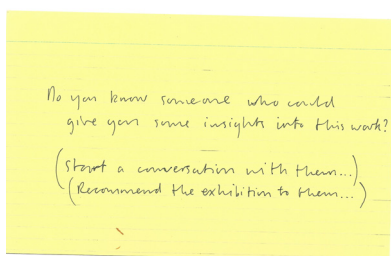 Do you know someone who could
give you some insights into this work?
(Start a conversation with them...)
(Recommend the exhibition to them...)